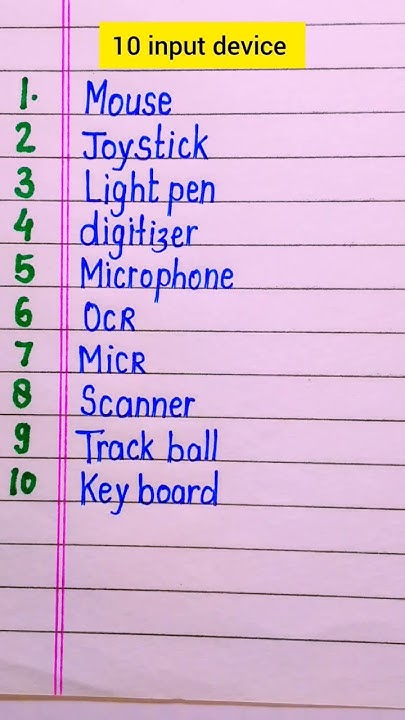 10 input device
1. Mouse
2 Joystick
3 Light pen
4 digitizer
5 Microphone
6 OCR
7 MICR
8 Scanner
9 Track ball
10 Key board